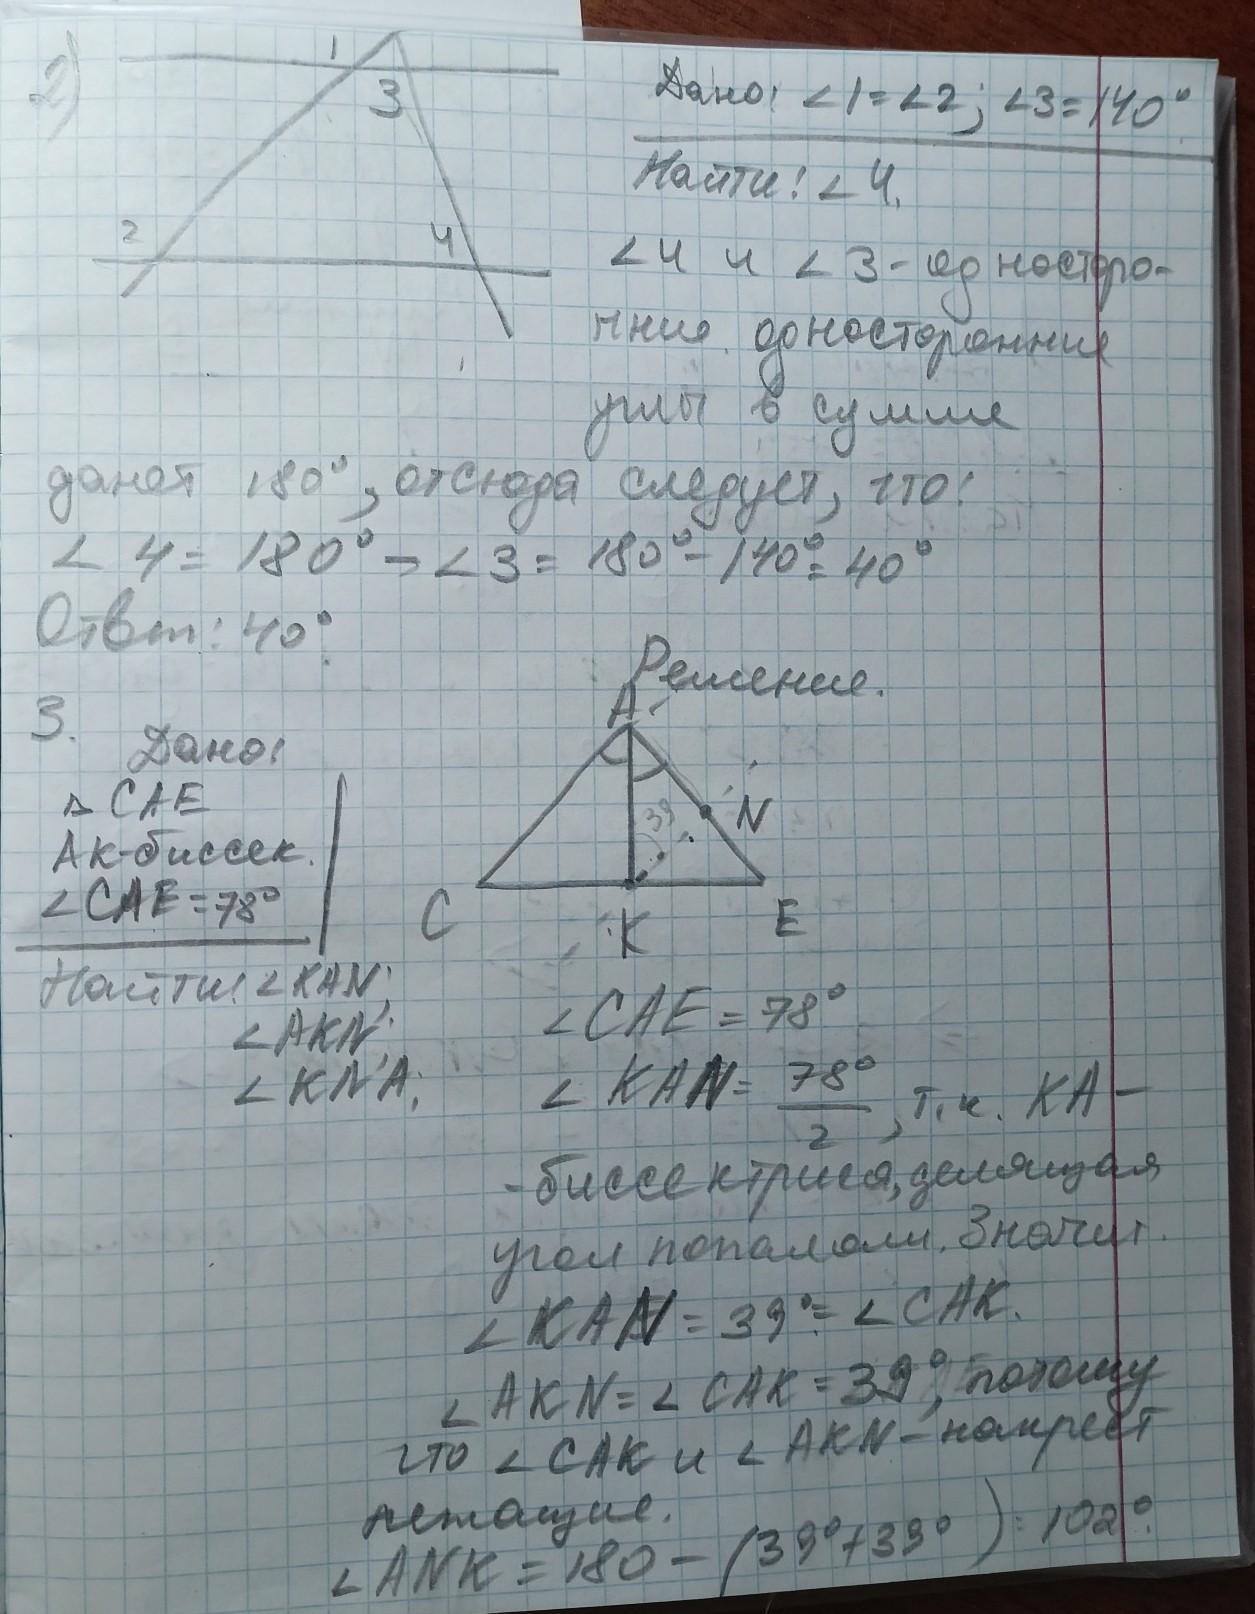 2)
1
3
2
4
Дано: ∠1=∠2; ∠3=140°
Найти: ∠4.
∠4 и ∠3 - односторо-
нние. односторонние
углы в сумме
данот 180°, отсюда следует, что:
∠ 4 = 180° - ∠3 = 180° - 140° = 40°
Отвт: 40°.
Решение.
3.
Дано:
△ CAE
AK-биссек.
∠CAE = 78°
Найти: ∠KAN;
∠AKN;
∠KNA;
A
39
N
C
K
E
∠CAE = 78°
∠ KAN = 78°/2, т.к. KA -
- биссектриса, делящая
угол пополам. Значит.
∠KAN = 39° = ∠CAK.
∠AKN = ∠CAK = 39°, потому
что ∠CAK и ∠AKN - накрест
лежащие.
∠ANK = 180 - (39°+39°) = 102°.